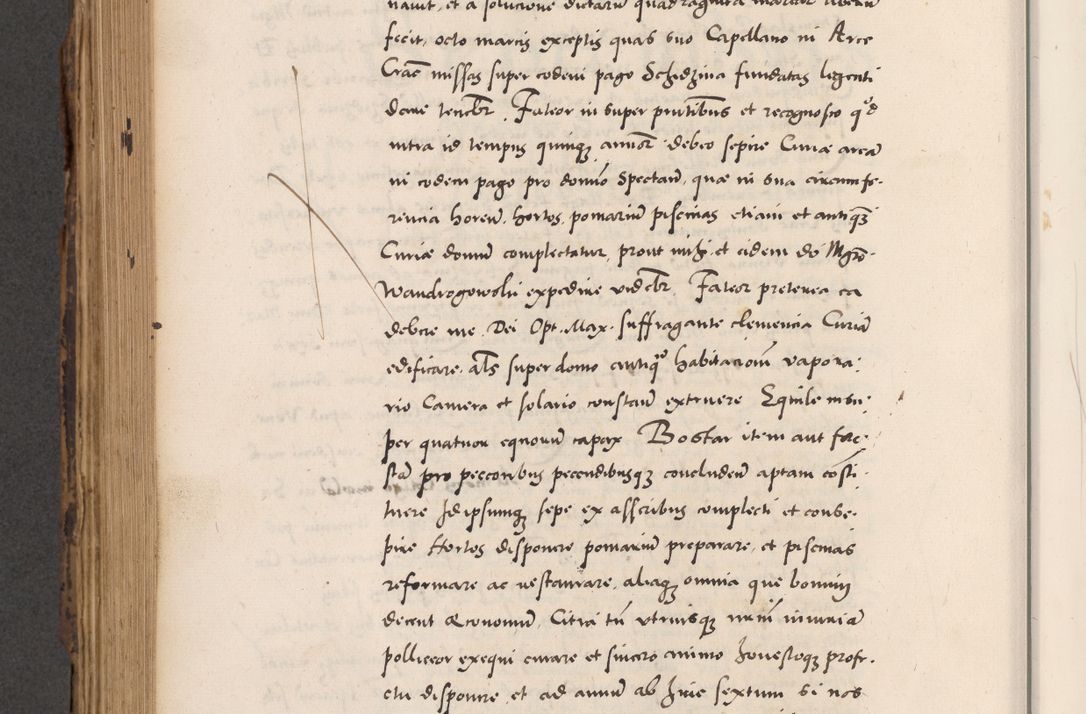 navit, et a solucione dictarum quadraginta marcar
fecit, octo marcis exceptis quas suo Capellano in Arce
Crac missas super eodem pago Schidzina fundatas legenti
dare tenebr. Fateor in super prntibus et recognosco q'd
intra id tempus quinq annor debeo sepire Curiae aream
in eodem pago pro domino spectan, quae in sua circumfe-
rencia horeum, hortos, pomarium piscinas etiam et antiqua
Curiae domum complectatur, prout mihi et eidem do Mgro
Wandrogowski expedire videbr. Fateor preterea ea
debere me Dei Opt. Max. suffragante clemencia Curiam
edificare, als super domo antiqua habitacioni vapora-
rio Camera et solario constan extruere Equile insu-
per quatuor equorum capax Bostar item aut
pro peccoribus peccudibusq concludendum aptam costi-
tuere Idipsumq sepe ex asseribus complecti et conse-
pire Hortos disponere pomarium preparare, et piscinas
reformare ac restaurare, aliaq omnia que bonum
decent œconomum, Citra tn utriusq nrm iniuriam
polliceor exequi curare et sincero animo honestoq profe-
ctu disponere et ad annum ab hinc sextum si nos